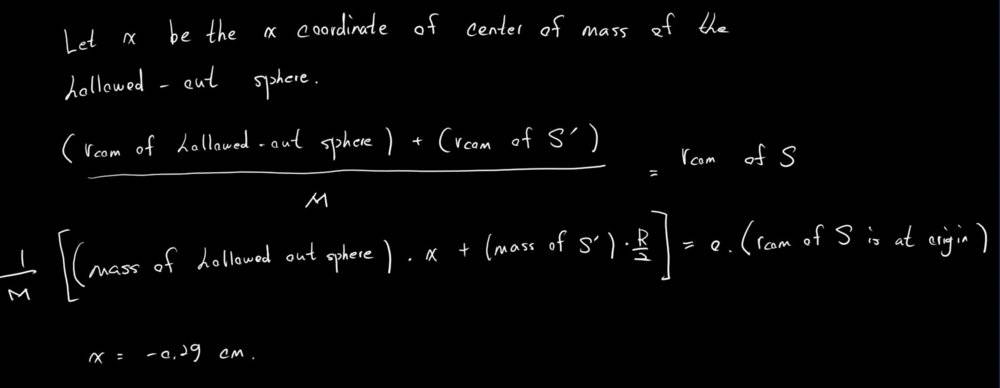 Let x be the x coordinate of center of mass of the
hollowed-out sphere.
(rcom of hollowed-out sphere) + (rcom of S′)
= rcom of S
M
1/M [(mass of hollowed out sphere) · x + (mass of S′) · R/2] = 0. (rcom of S is at origin)
x = -0.29 cm.